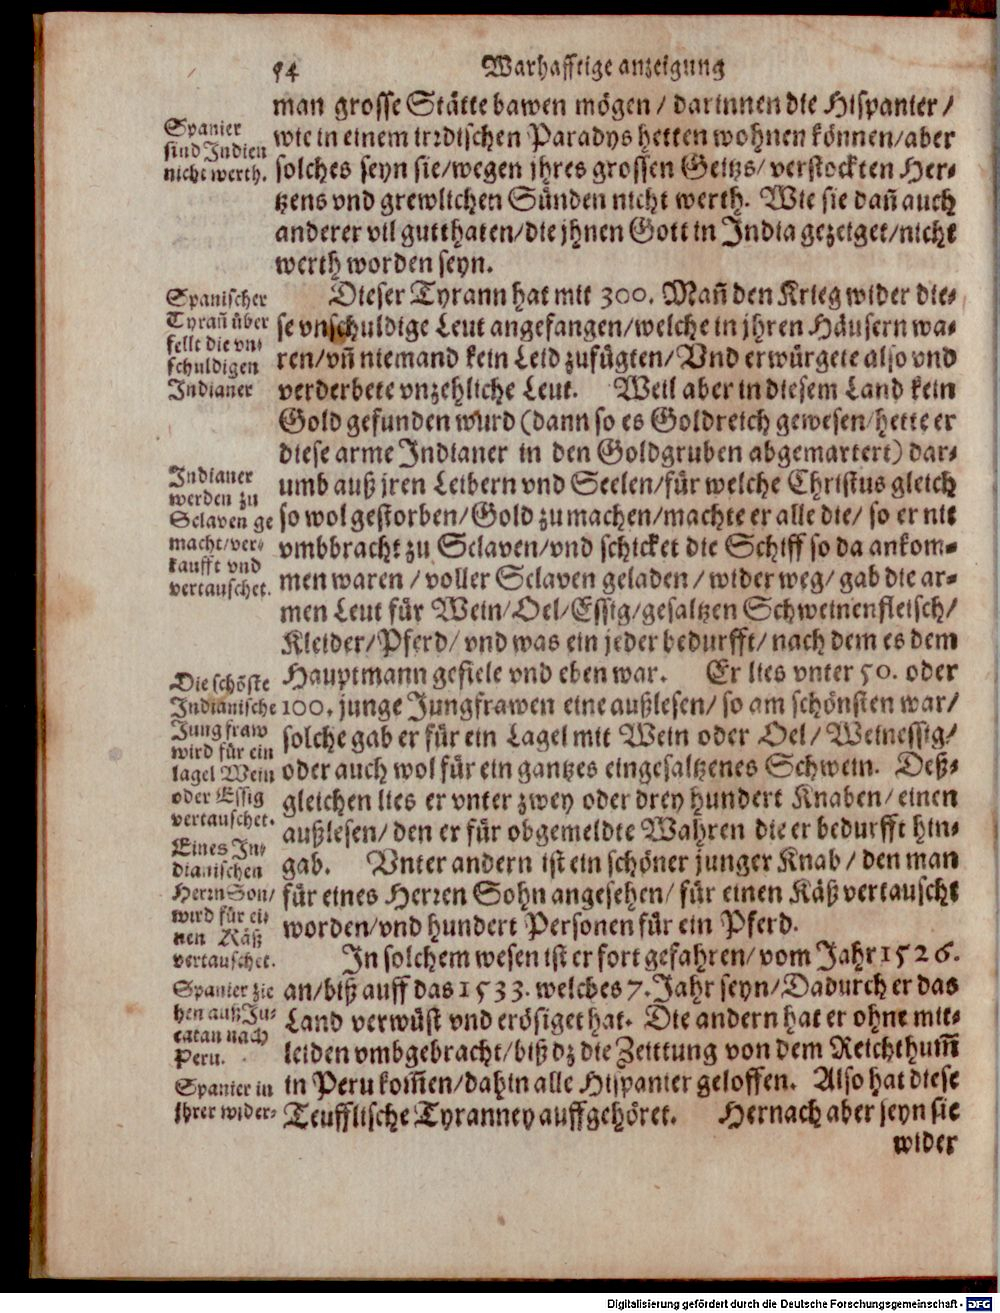 54 Warhafftige anzeigung
man grosse Stätte bawen mögen / darinnen die Hispanier /
wie in einem irꝛdischen Paradys hetten wohnen können/aber
solches seyn sie/wegen jhres grossen Geitzs/ verstockten Her-
tzens vnd grewlichen Sünden nicht werth. Wie sie dañ auch
anderer vil gutthaten/die jhnen Gott in India gezeiget/nicht
werth worden seyn.
Spanier
sind Indien
nicht werth.
Dieser Tyrann hat mit 300. Mañ den Krieg wider die-
se vnschuldige Leut angefangen/welche in jhren Häusern wa-
ren/vñ niemand kein Leid zufügten/Vnd erwürgete also vnd
verderbete vnzehliche Leut. Weil aber in diesem Land kein
Gold gefunden wurd (dann so es Goldreich gewesen/hette er
diese arme Indianer in den Goldgruben abgemartert) dar-
umb auß jren Leibern vnd Seelen/für welche Christus gleich
so wol gestorben/Gold zu machen/machte er alle die/ so er nit
vmbbracht zu Sclaven/vnd schicket die Schiff so da ankom-
men waren / voller Sclaven geladen / wider weg/ gab die ar-
men Leut für Wein/Oel/Essig/gesaltzen Schweinenfleisch/
Kleider/Pferd/ vnd was ein jeder bedurfft/ nach dem es dem
Hauptmann gefiele vnd eben war. Er lies vnter 50. oder
100. junge Jungfrawen eine außlesen/ so am schönsten war/
solche gab er für ein Lagel mit Wein oder Oel/ Weinessig/
oder auch wol für ein gantzes eingesaltzenes Schwein. Deß-
gleichen lies er vnter zwey oder drey hundert Knaben/ einen
außlesen/ den er für obgemeldte Wahren die er bedurfft hin-
gab. Vnter andern ist ein schöner junger Knab / den man
für eines Herꝛen Sohn angesehen/ für einen Käß vertauscht
worden/vnd hundert Personen für ein Pferd.
Spanischer
Tyrañ über
fellt die vn-
schuldigen
Indianer
Indianer
werden zu
Sclaven ge
macht/ver-
kaufft vnd
vertauschet.
Die schöste
Indianische
Jungfraw
wird für ein
lagel Wein
oder Essig
vertauschet.
Eines In-
dianischen
Herrn Son/
wird für ei-
nen Käß
vertauschet.
In solchem wesen ist er fort gefahren/ vom Jahr 1526.
an/biß auff das 1533. welches 7. Jahr seyn/Dadurch er das
Land verwüst vnd erösiget hat. Die andern hat er ohne mit-
leiden vmbgebracht/biß dz die Zeittung von dem Reichthum̃
in Peru kom̃en/dahin alle Hispanier geloffen. Also hat diese
Teufflische Tyranney auffgehöret. Hernach aber seyn sie
wider
Spanier zie
hen auß Ju-
catan nach
Peru.
Spanier in
jhrer wider-
Digitalisierung gefördert durch die Deutsche Forschungsgemeinschaft - DFG